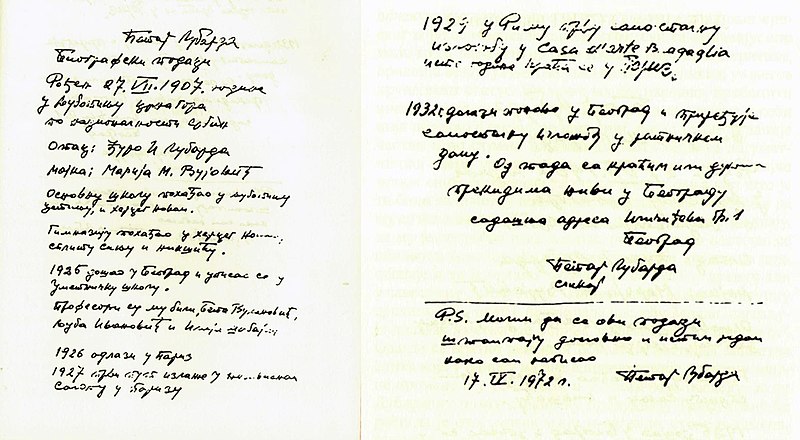 Петар Лубарда
Биографски подаци
Рођен 27. VII. 1907. године
у Љуботињу Црна Гора
по националности Србин
Отац: Ђуро И Лубарда
мајка: Марија М. Вујовић
Основну школу похађао у Љуботињу
Цетињу, и Херцег Новом.
Гимназију похађао у Херцег Новом,
Сплиту Сињу и Никшићу.
1925 дошао у Београд и уписао се у
Уметничку школу.
Професори су му били, Бета Вукановић,
Љуба Ивановић и
1926 одлази у Париз
1927 први пут излаже у
Салону у Паризу
1929 у Риму прву самосталну
изложбу у Casa d'arte Bragaglia
исте године врати се у Париз.
1932 г. долази поново у Београд и приређује
самосталну изложбу у ратничком
дому. Од тада са краћим или дужим
прекидима живи у Београду
садашња адреса Иличићева Бр. 1
Београд
Петар Лубарда
сликар
P.S. Молим да се ови подаци
штампају дословно и
како сам написао
17. IX. 1972 г. Петар Лубарда